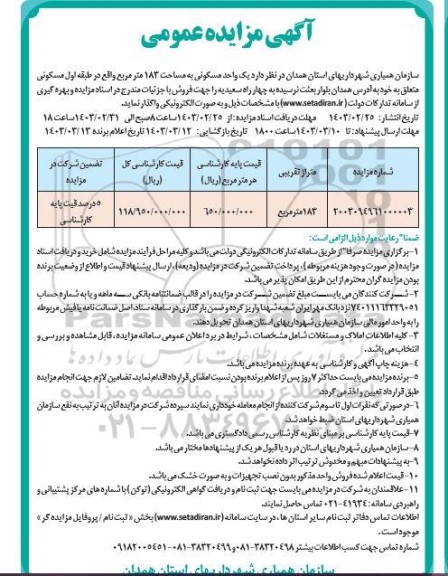 آگهی مزایده عمومی
سازمان همیاری شهرداریهای استان همدان در نظر دارد یک واحد مسکونی به مساحت ۱۸۳ متر مربع واقع در طبقه اول مسکونی
متعلق به خود به آدرس همدان بلوار بعثت نرسیده به چهار راه سعیدیه را جهت فروش با جزئیات مندرج در اسناد مزایده و بهره گیری
از سامانه تدارکات دولت (www.setadiran.ir) با مشخصات ذیل و به صورت الکترونیکی واگذار نماید.
تاریخ انتشار: ۱۴۰۳/۰۲/۲۵ مهلت دریافت اسناد مزایده: از ۱۴۰۳/۰۲/۲۵ ساعت ۸ صبح الی ۱۴۰۳/۰۲/۳۱ ساعت ۱۸
مهلت ارسال پیشنهاد: تا ۱۴۰۳/۰۳/۱۰ ساعت ۱۸۰۰ تاریخ بازگشایی: ۱۴۰۳/۰۳/۱۲ تاریخ اعلام برنده ۱۴۰۳/۰۳/۱۳
شماره مزایده متراژ تقریبی قیمت پایه کارشناسی هر متر مربع (ریال) قیمت کارشناسی کل (ریال) تضمین شرکت در مزایده
۲۰۰۳۰۹۴۹۶۱۰۰۰۰۰۳ ۱۸۳ مترمربع ۶۵۰/۰۰۰/۰۰۰ ۱۱۸/۹۵۰/۰۰۰/۰۰۰ ۵ درصد قیمت پایه کارشناسی
ضمنا" رعایت موارد ذیل الزامی است:
۱- برگزاری مزایده صرفا" از طریق سامانه تدارکات الکترونیکی دولت می باشد و کلیه مراحل فرآیند مزایده شامل خرید و دریافت اسناد
مزایده (در صورت وجود هزینه مربوطه)، پرداخت تضمین شرکت در مزایده (ودیعه)، ارسال پیشنهاد قیمت و اطلاع از وضعیت برنده
بودن مزایده گران محترم از این طریق امکان پذیر می باشد.
۲- شرکت کنندگان می بایست مبلغ تضمین شرکت در مزایده را در قالب ضمانتنامه بانکی سه ماهه و یا به شماره حساب
نزد بانک مهر ایران شعبه شهدا واریز کرده و ضمن بارگذاری در سامانه ستاد، اصل ضمانت نامه یا فیش مربوطه
را به واحد امور مالی سازمان همیاری شهرداریهای استان همدان تحویل دهند.
۳- کلیه اطلاعات املاک و مستغلات شامل مشخصات، شرایط در برد اعلان عمومی سامانه مزایده، قابل مشاهده و بررسی و
انتخاب می باشد.
۴- هزینه چاپ آگهی و کارشناسی به عهده برنده مزایده می باشد.
۵- برنده مزایده می بایست حداکثر ۷ روز پس از اعلام برنده بودن نسبت امضای قرارداد اقدام نماید. تضامین لازم جهت انجام مزایده
طبق قرارداد تعیین و اخذ می گردد.
۶- در صورتی که نفرات اول تا سوم شرکت کننده از انجام معامله خودداری نمایند سپرده شرکت در مزایده آنان به ترتیب به نفع سازمان
همیاری شهرداریهای استان ضبط خواهد شد.
۷- قیمت پایه کارشناسی بر مبنای نظریه کارشناس رسمی دادگستری می باشد.
۸- سازمان همیاری شهرداریهای استان در رد یا قبول هر یک از پیشنهادها مختار می باشد.
۹- به پیشنهادات مبهم و مخدوش ترتیب اثر داده نخواهد شد.
۱۰- قیمت اعلام شده فروش واحد مذکور بدون نصب تجهیزات و به صورت خشک می باشد.
۱۱- علاقمندان به شرکت در مزایده می بایست جهت ثبت نام و دریافت گواهی الکترونیکی (توکن) با شماره های مرکز پشتیبانی و
راهبری سامانه: ۴۱۹۳۴-۰۲۱ تماس حاصل نمایند.
اطلاعات تماس دفاتر ثبت نام سایر استان ها، در سایت سامانه (www.setadiran.ir) بخش « ثبت نام / پروفایل مزایده گر »
موجود است.
شماره تماس جهت کسب اطلاعات بیشتر ۳۸۳۲۰۴۹۸-۰۸۱ و ۳۸۳۲۰۴۹۹-۰۸۱-۰۹۱۸۲۰۰۵۴۵۱
سازمان همیاری شهرداریهای استان همدان